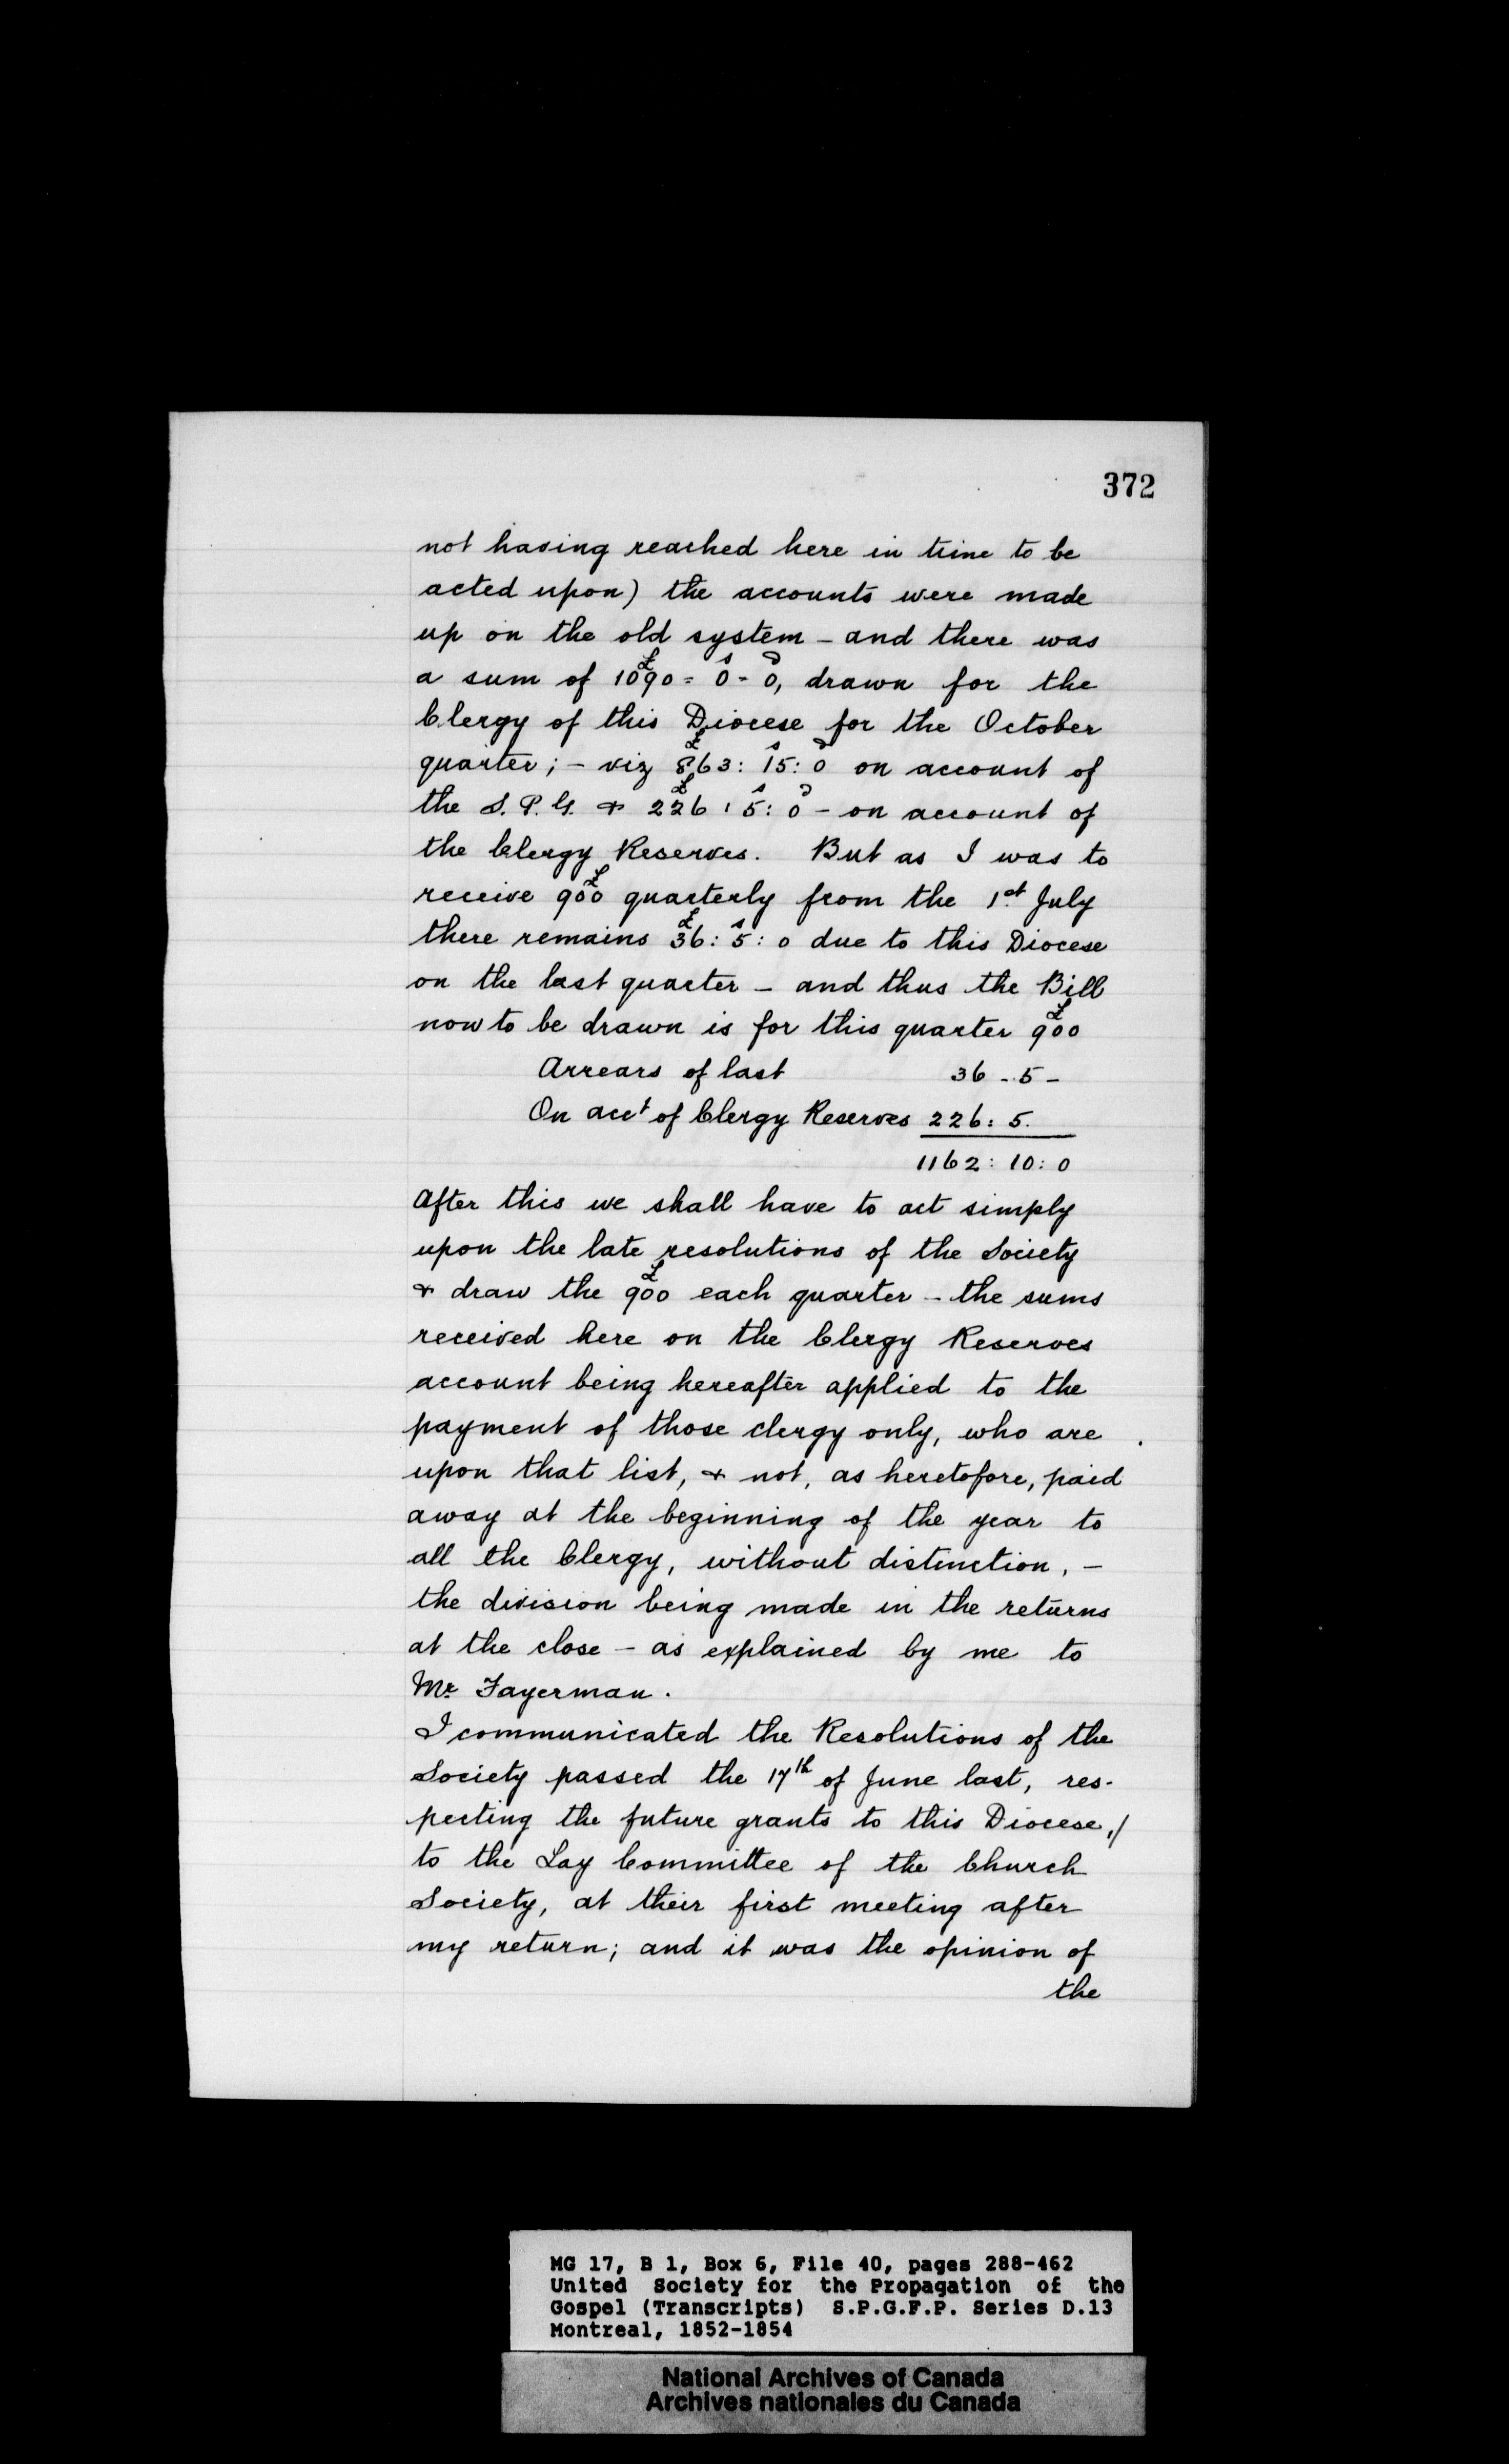 372
not having reached here in time to be
acted upon) the accounts were made
up on the old system – and there was
a sum of 1090£ = 0s - 0d, drawn for the
Clergy of this Diocese for the October
quarter; – viz 863£ : 15s : 0d on account of
the S. P. G. & 226£ : 5s : 0d – on account of
the Clergy Reserves. But as I was to
receive 900£ quarterly from the 1st July
there remains 36£ : 5s : 0 due to this Diocese
on the last quarter – and thus the Bill
now to be drawn is for this quarter 900£
Arrears of last 36 - 5 –
On acct of Clergy Reserves 226 : 5.
1162 : 10 : 0
After this we shall have to act simply
upon the late resolutions of the Society
& draw the 900£ each quarter – the sums
received here on the Clergy Reserves
account being hereafter applied to the
payment of those clergy only, who are
upon that list, & not, as heretofore, paid
away at the beginning of the year to
all the Clergy, without distinction, –
the division being made in the returns
at the close – as explained by me to
Mr Fayerman.
I communicated the Resolutions of the
Society passed the 17th of June last, res-
pecting the future grants to this Diocese,
to the Lay Committee of the Church
Society, at their first meeting after
my return; and it was the opinion of
the
MG 17, B 1, Box 6, File 40, pages 288-462
United Society for the Propagation of the
Gospel (Transcripts) S.P.G.F.P. Series D.13
Montreal, 1852-1854
National Archives of Canada
Archives nationales du Canada